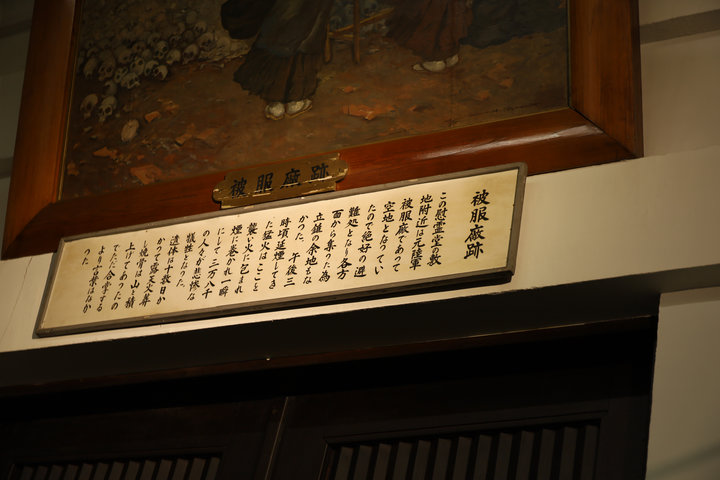 被服廠跡
被服廠跡
この慰霊堂の敷
地附近は元陸軍
被服廠であって
空地となってい
たので絶好の避
難処となり各方
面から奔った為
立錐の余地もな
かった。午後三
時頃延焼してき
た猛火はここを
襲い火に包まれ
煙に巻かれ一瞬
にして三万八千
の人々が悲惨な
犠牲となった。
遺体は十数日か
かって露天火葬
し焼骨は山と積
上げてあったの
でただ合掌する
より言葉はなか
った。